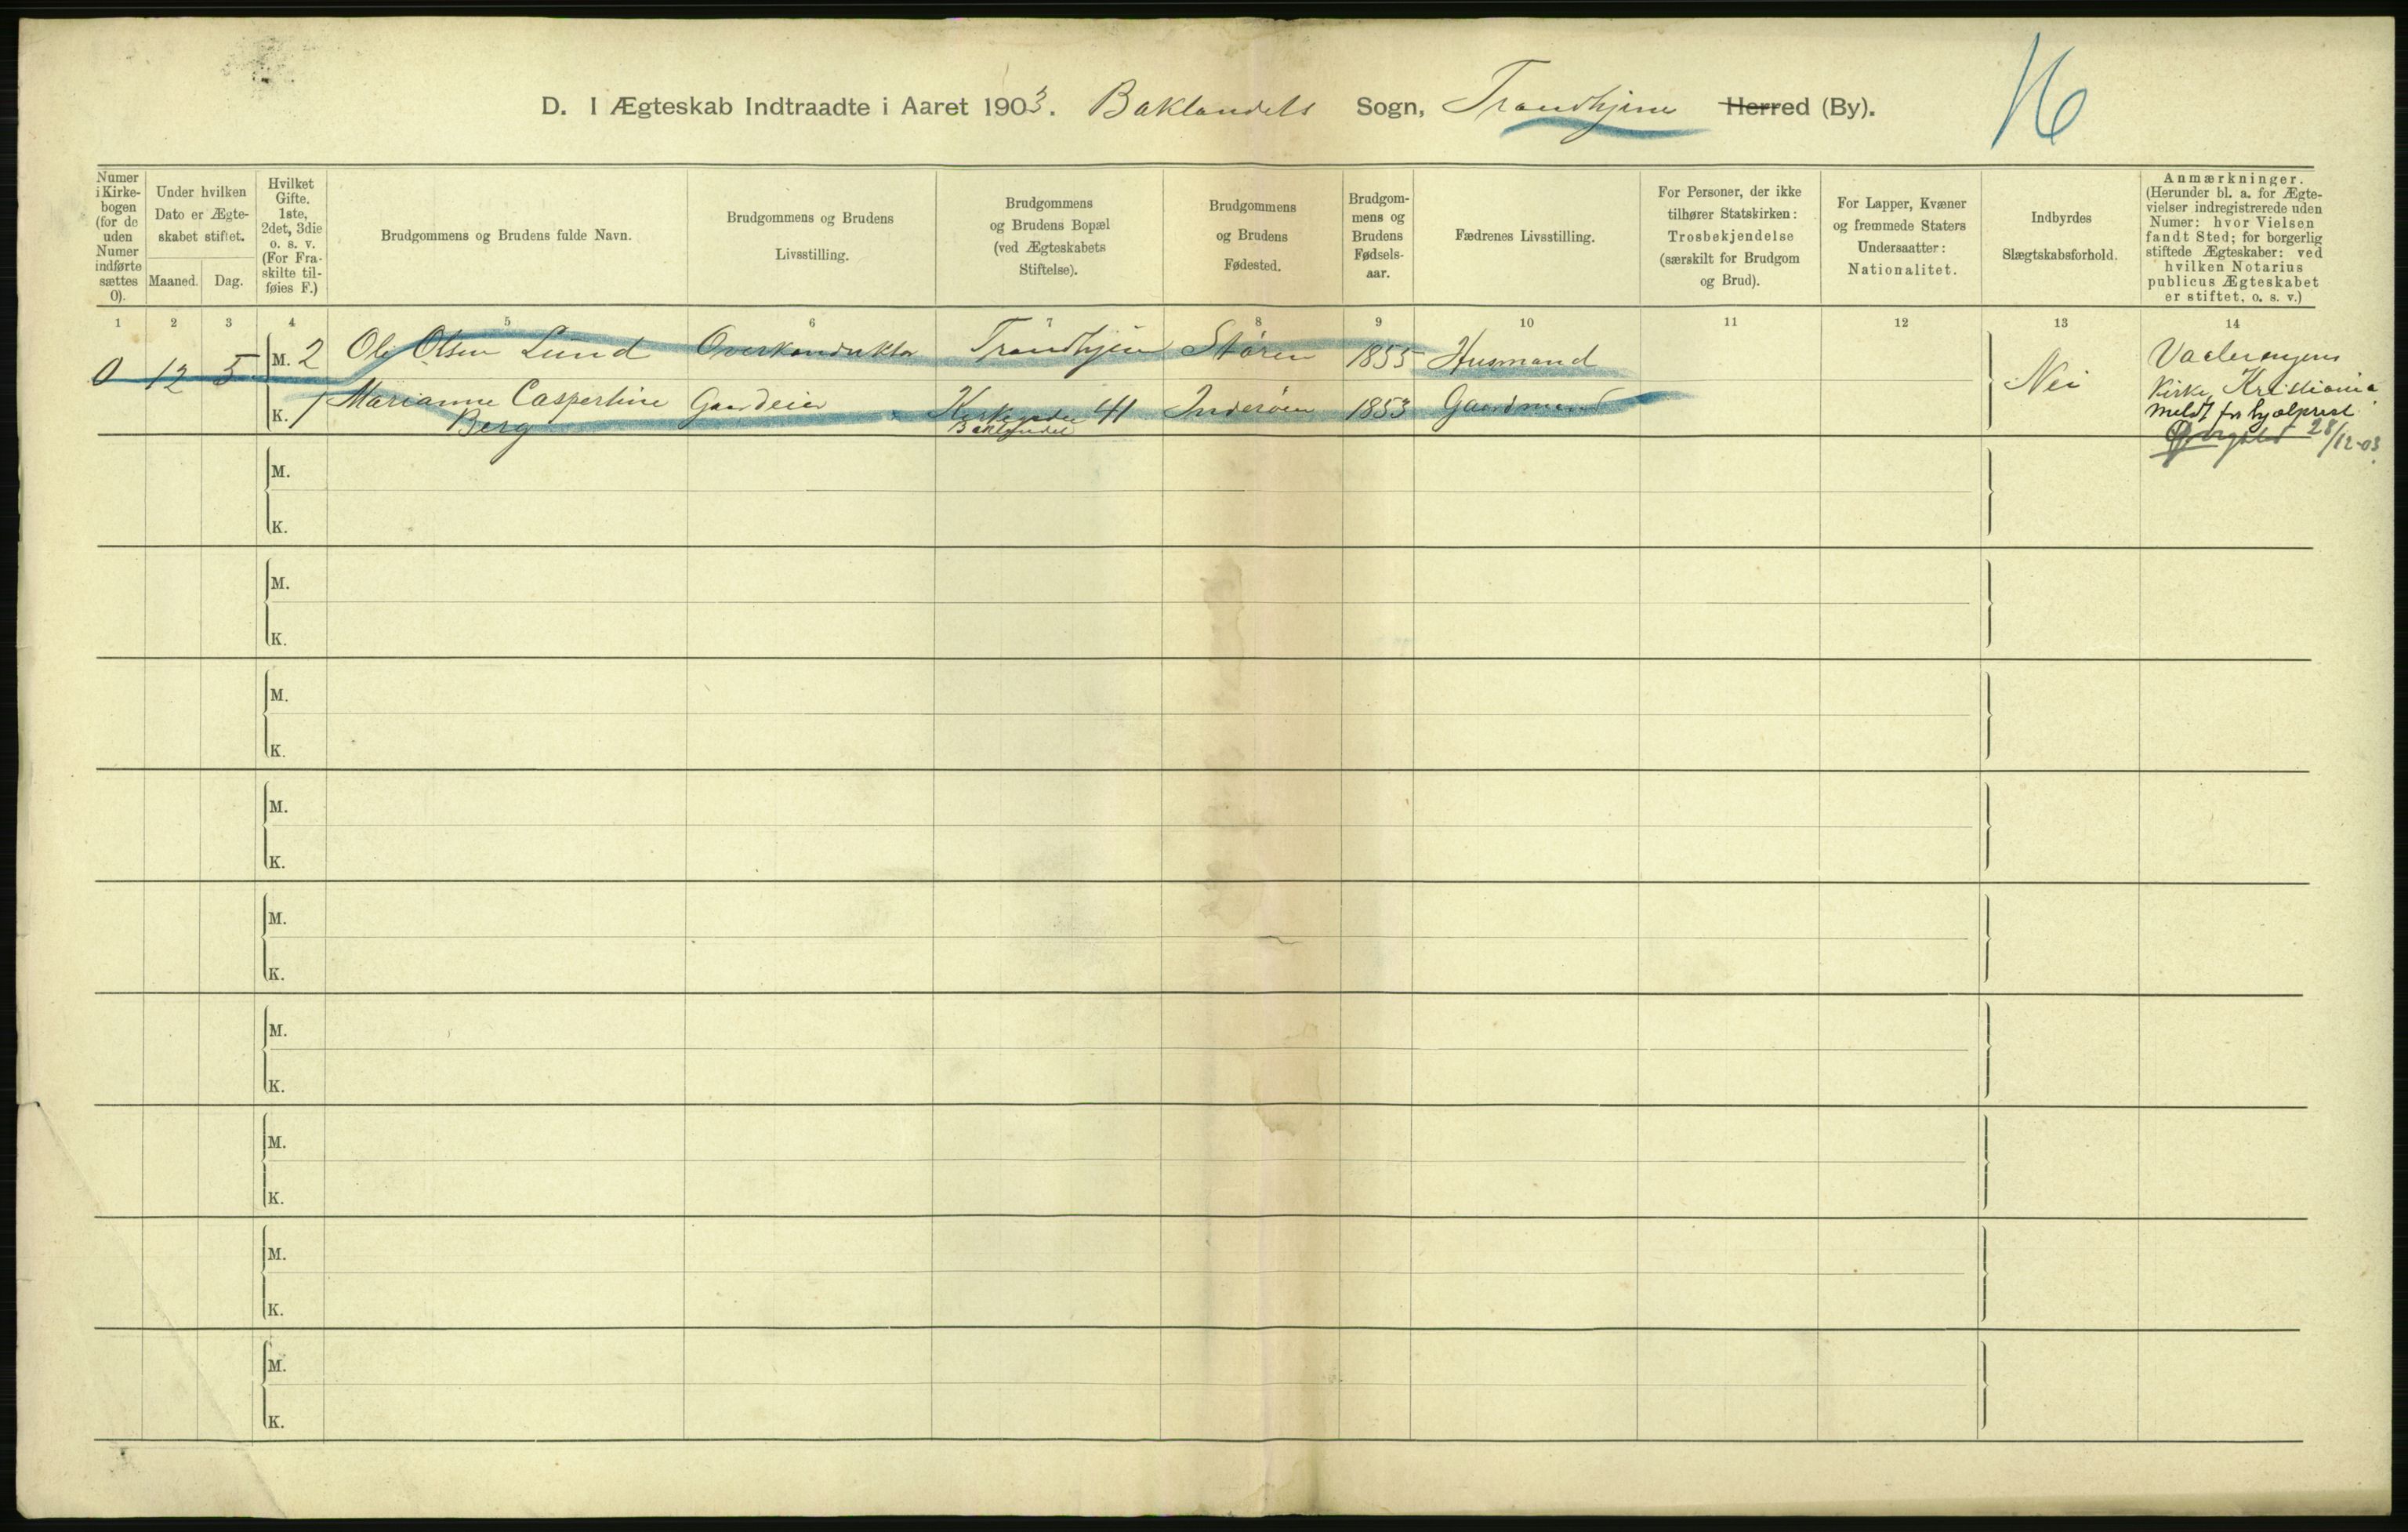 D. I Ægteskab Indtraadte i Aaret 1903. Baklandets Sogn, Trondhjem Herred (By).
16
Numer i Kirke-bogen (for de uden Numer indførte sættes 0).
Under hvilken Dato er Ægte-skabet stiftet.
Maaned. Dag.
Hvilket Gifte. 1ste, 2det, 3die o. s. v. (For Fra-skilte til-føies F.)
Brudgommens og Brudens fulde Navn.
Brudgommens og Brudens Livsstilling.
Brudgommens og Brudens Bopæl (ved Ægteskabets Stiftelse).
Brudgommens og Brudens Fødested.
Brudgom-mens og Brudens Fødsels-aar.
Fædrenes Livsstilling.
For Personer, der ikke tilhører Statskirken: Trosbekjendelse (særskilt for Brudgom og Brud).
For Lapper, Kvæner og fremmede Staters Undersaatter: Nationalitet.
Indbyrdes Slægtskabsforhold.
Anmærkninger. (Herunder bl. a. for Ægte-vielser indregistrerede uden Numer: hvor Vielsen fandt Sted; for borgerlig stiftede Ægteskaber: ved hvilken Notarius publicus Ægteskabet er stiftet, o. s. v.)
1 2 3 4 5 6 7 8 9 10 11 12 13 14
0 12 5 M. 2 Ole Olsen Lund Overkonduktør Trondhjem Støren 1855 Husmand
K. 1 Marianne Caspertine Berg Gaardeier Kirkegaden 41 Baklandet Inderøen 1853 Gaardmand
Nei
Vaalerengens
Kirke, Kristiania
meldt fra hjælpprest
28/12-03
M.
K.
M.
K.
M.
K.
M.
K.
M.
K.
M.
K.
M.
K.
M.
K.
M.
K.